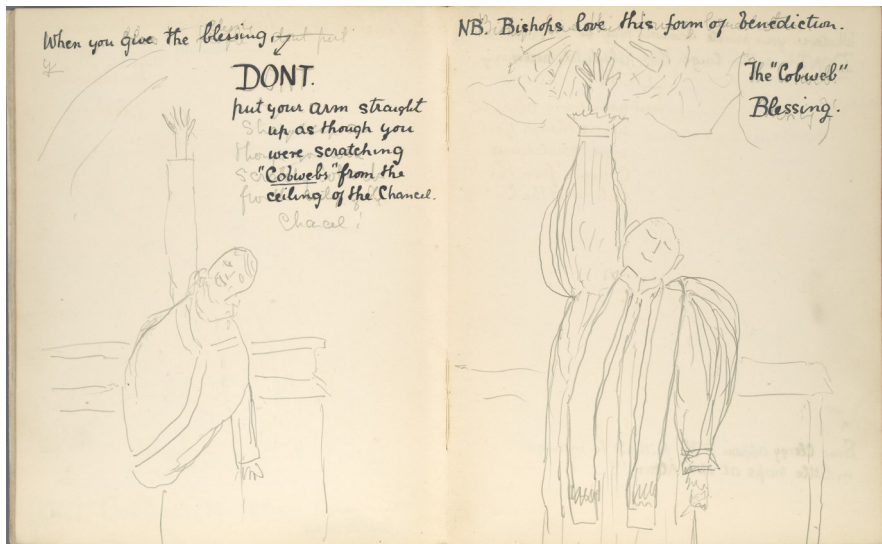 When you give the blessing,
DONT.
put your arm straight
up as though you
were scratching
"Cobwebs" from the
ceiling of the Chancel.
Chancel!
NB. Bishops love this form of benediction.
The "Cobweb"
Blessing.